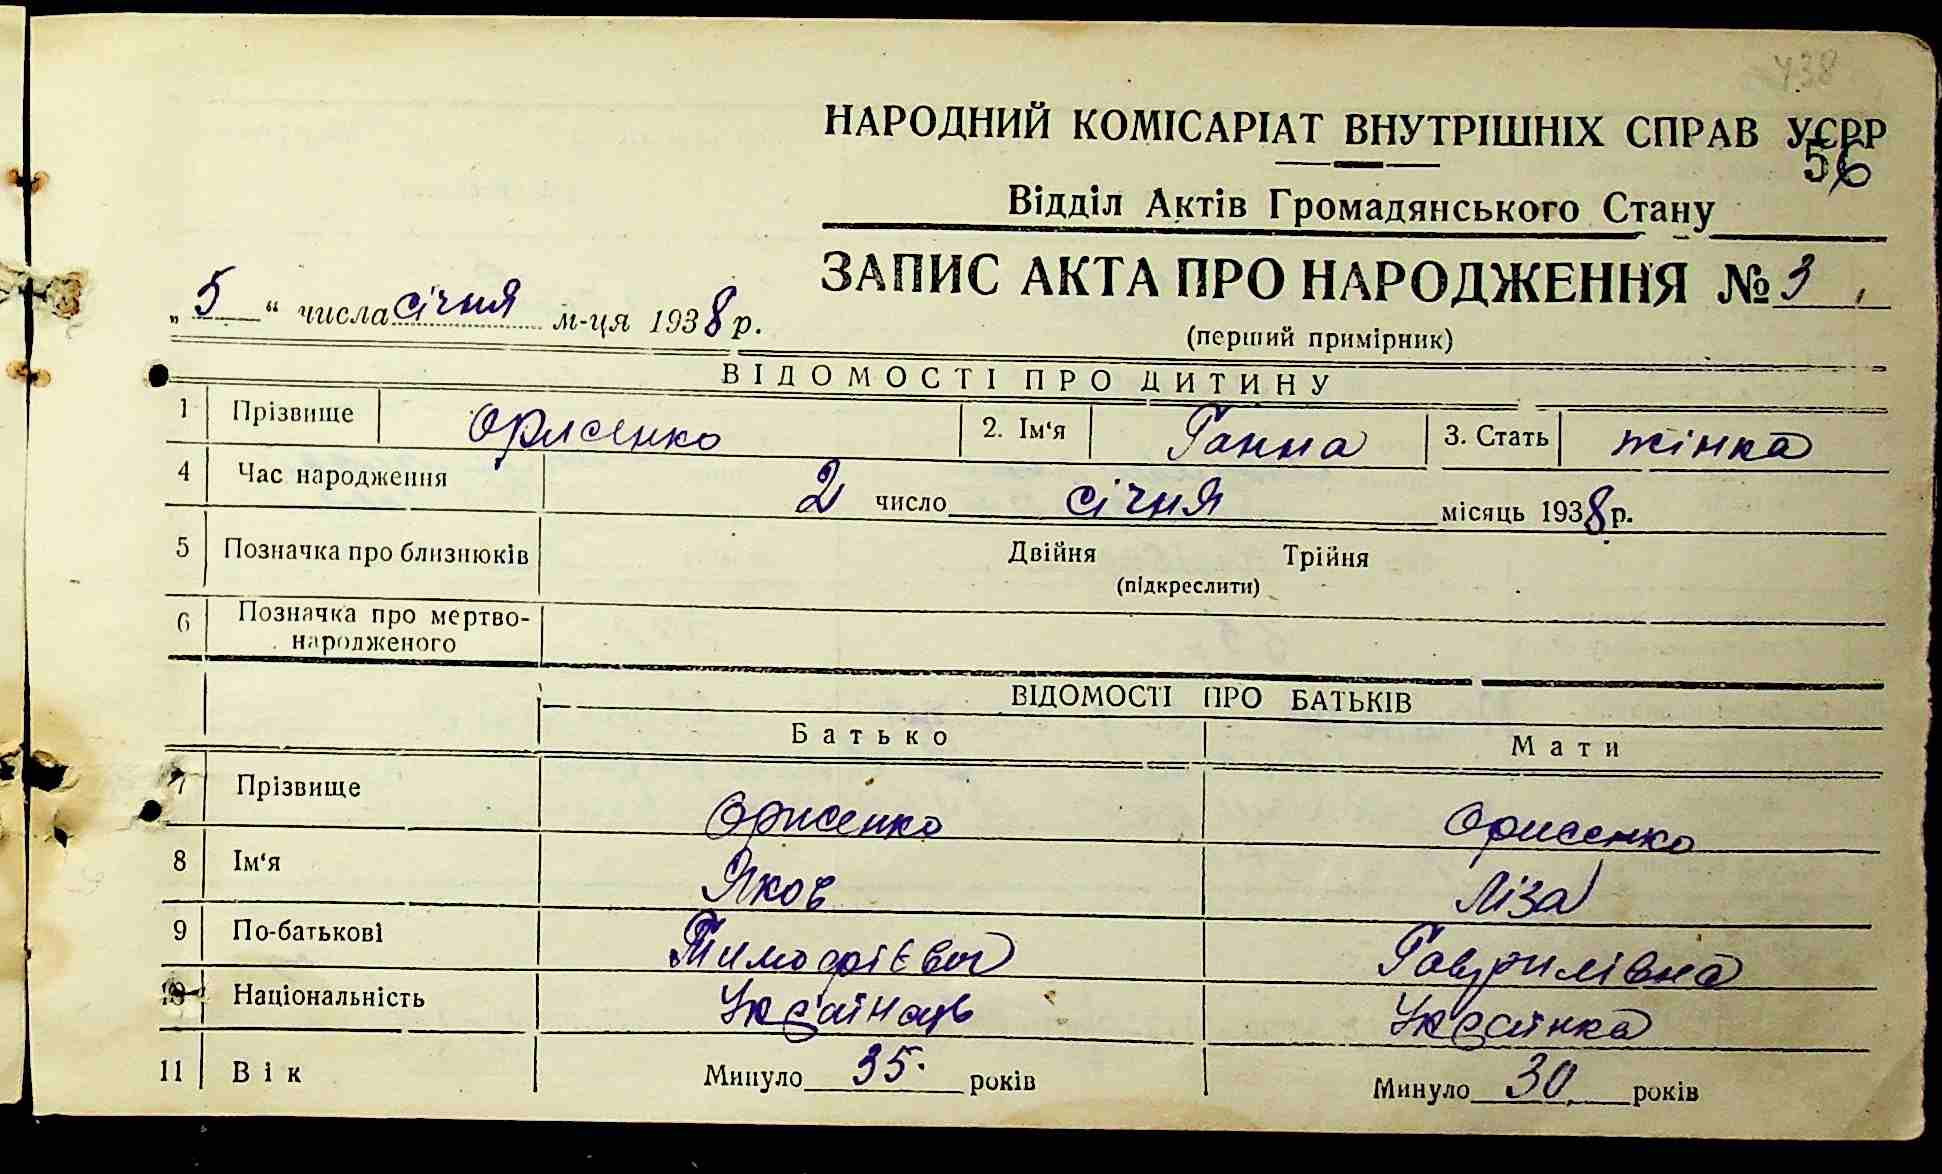 438
НАРОДНИЙ КОМІСАРІАТ ВНУТРІШНІХ СПРАВ УСРР
56
Відділ Актів Громадянського Стану
ЗАПИС АКТА ПРО НАРОДЖЕННЯ № 3
„ 5 “ числа січня м-ця 1938 р.
(перший примірник)
ВІДОМОСТІ ПРО ДИТИНУ
1 Прізвище Орисенко 2. Ім‘я Ганна 3. Стать жінка
4 Час народження 2 число січня місяць 1938 р.
5 Позначка про близнюків Двійня Трійня
(підкреслити)
6 Позначка про мертво-
народженого
ВІДОМОСТІ ПРО БАТЬКІВ
Батько Мати
7 Прізвище Орисенко Орисенко
8 Ім‘я Яков Ліза
9 По-батькові Тимофієвич Гаврилівна
10 Національність Українець Українка
11 Вік Минуло 35. років Минуло 30 років